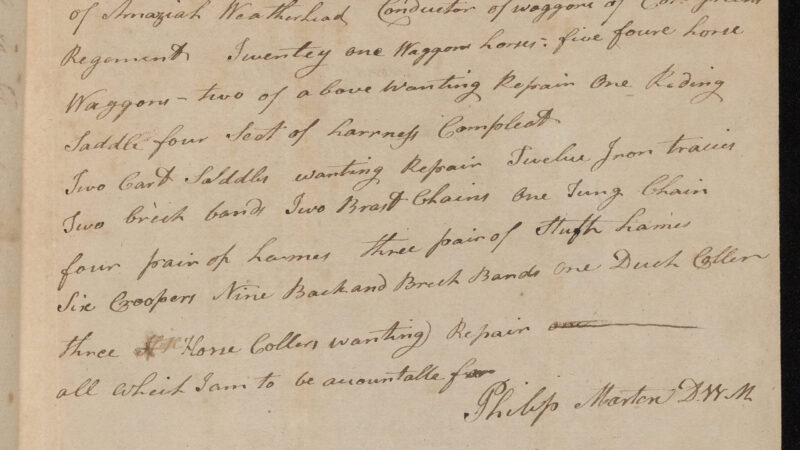 of Amaziah Weatherhead Conductor of waggons of Col. Greens
Regement Twentey one Waggon horses - five foure horse
Waggons - two of above wanting Repair One Riding
Saddle four Seot of harrness Compleat
Two Cart Saddles wanting Repair Twelve Iron traces
Two brich bands Two Brast Chains One Tung Chain
four pair of hames three pair of Stuft hames
Six Croopers Nine Back and Brich Bands One Duch Coller
three Horse Collers wanting Repair
all which I am to be acountalle for
Philip Marten D.W.M.